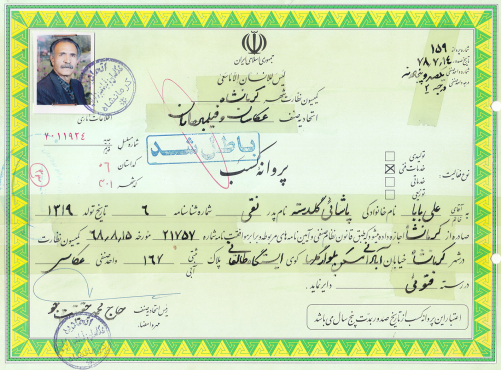 جمهوری اسلامی ایران
شماره پروانه ۱۵۹
۷۸,۷,۱۴
درجه ۲
کمیسیون نظارت شهر کرمانشاه
اتحادیه صنف عکاسان و فیلمبرداران
اطلاعات آماری
شماره مسلسل ۲۰۱۱۹۲۴
باطل شد
پروانه کسب
کد استان ۰۶
کد شهر
نوع فعالیت:
تولیدی
خدمات فنی
خدماتی
توزیعی
به آقای علی بابا نام خانوادگی پاشائی گلدسته نام پدر نقی شماره شناسنامه ۶ تاریخ تولد ۱۳۱۹
صادره از کرمانشاه اجازه داده میشود طبق قانون نظام صنفی و آئین نامه های مربوط و برابر موافقت نامه شماره ۲۱۷۵۷ مورخه ۶۸,۸,۱۵ کمیسیون نظارت
در شهر کرمانشاه خیابان کوی ایستگاه طالقانی پلاک ۱۶۷ واحد صنفی عکاسی
در رسته فتوکپی دایر نماید.
رئیس اتحادیه صنف
مهر و امضاء
حاج محمد
اعتبار این پروانه کسب از تاریخ صدور بمدت پنج سال می باشد